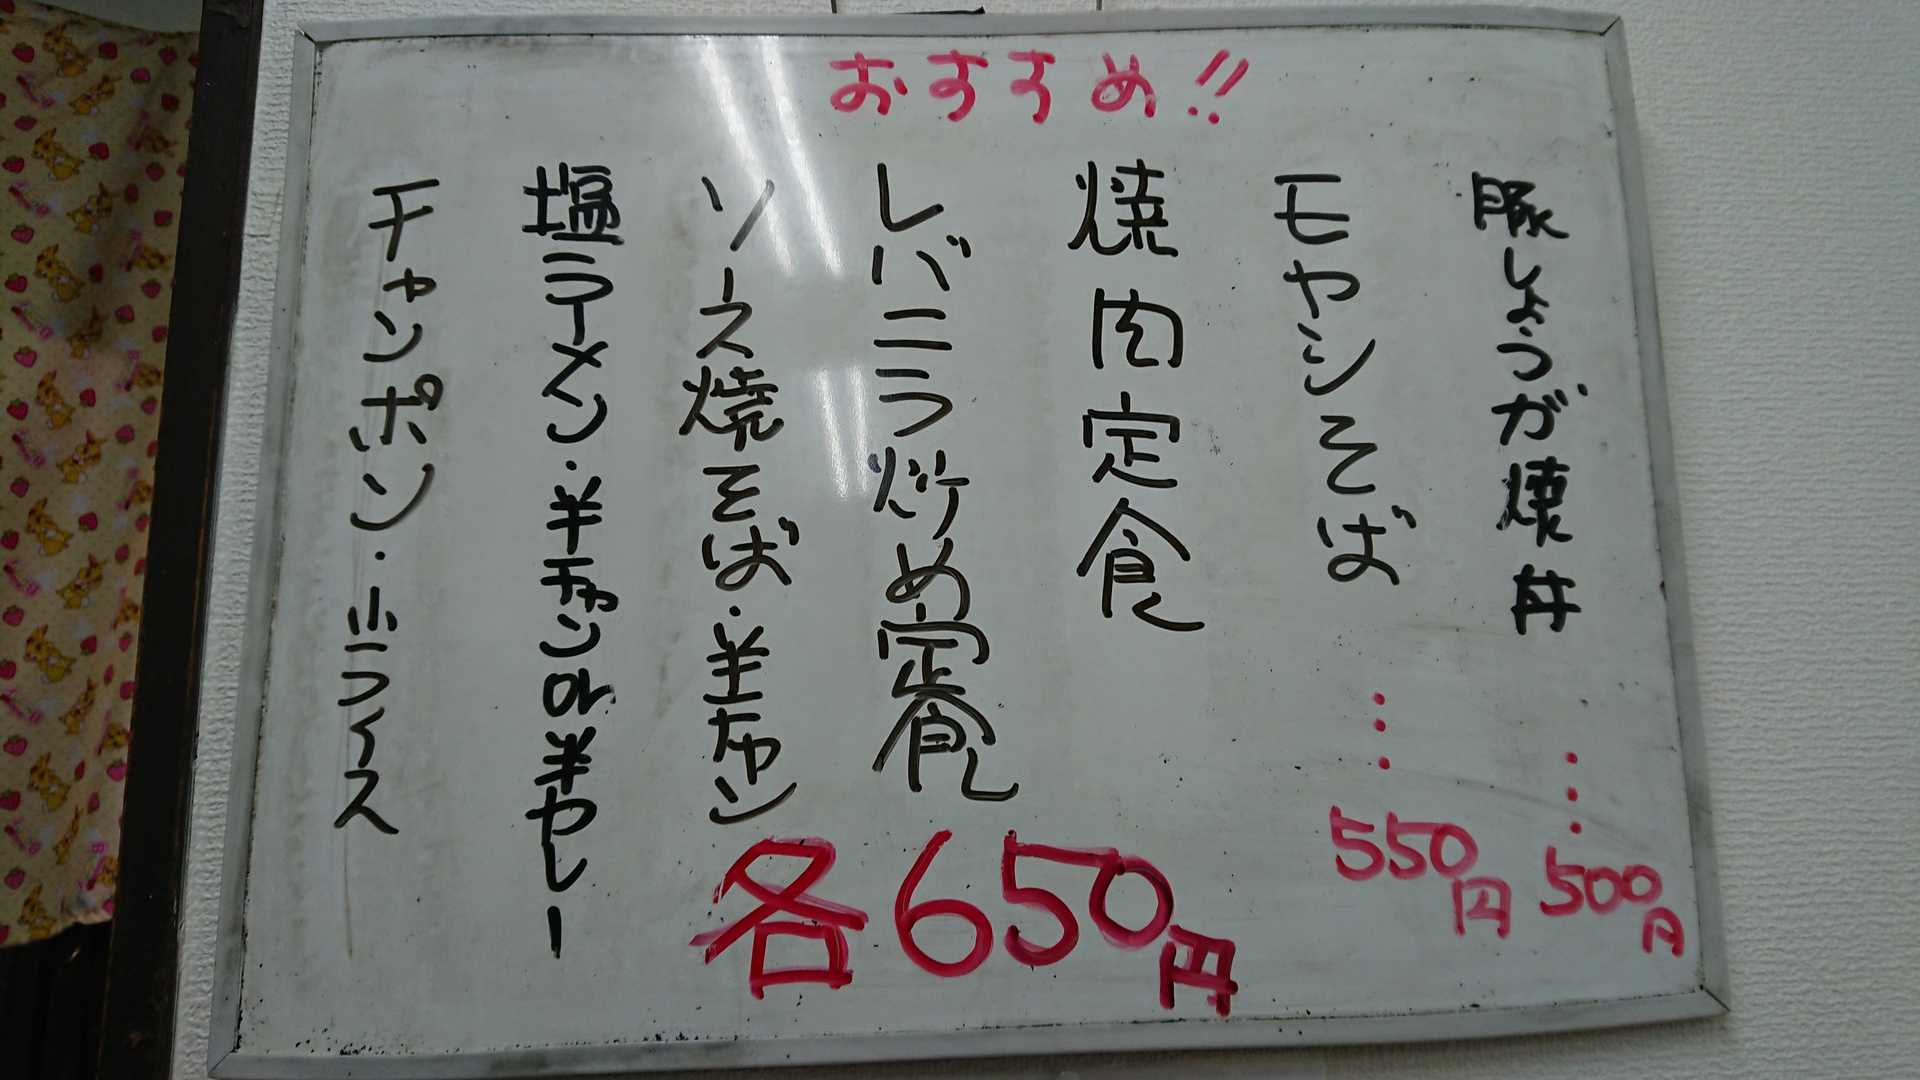 おすすめ!!
豚しょうが焼丼 … 500円
モヤシそば … 550円
焼肉定食
レバニラ炒め定食
ソース焼そば・半チャン
塩ラーメン・半チャンor半カレー
チャンポン・小ライス
各650円